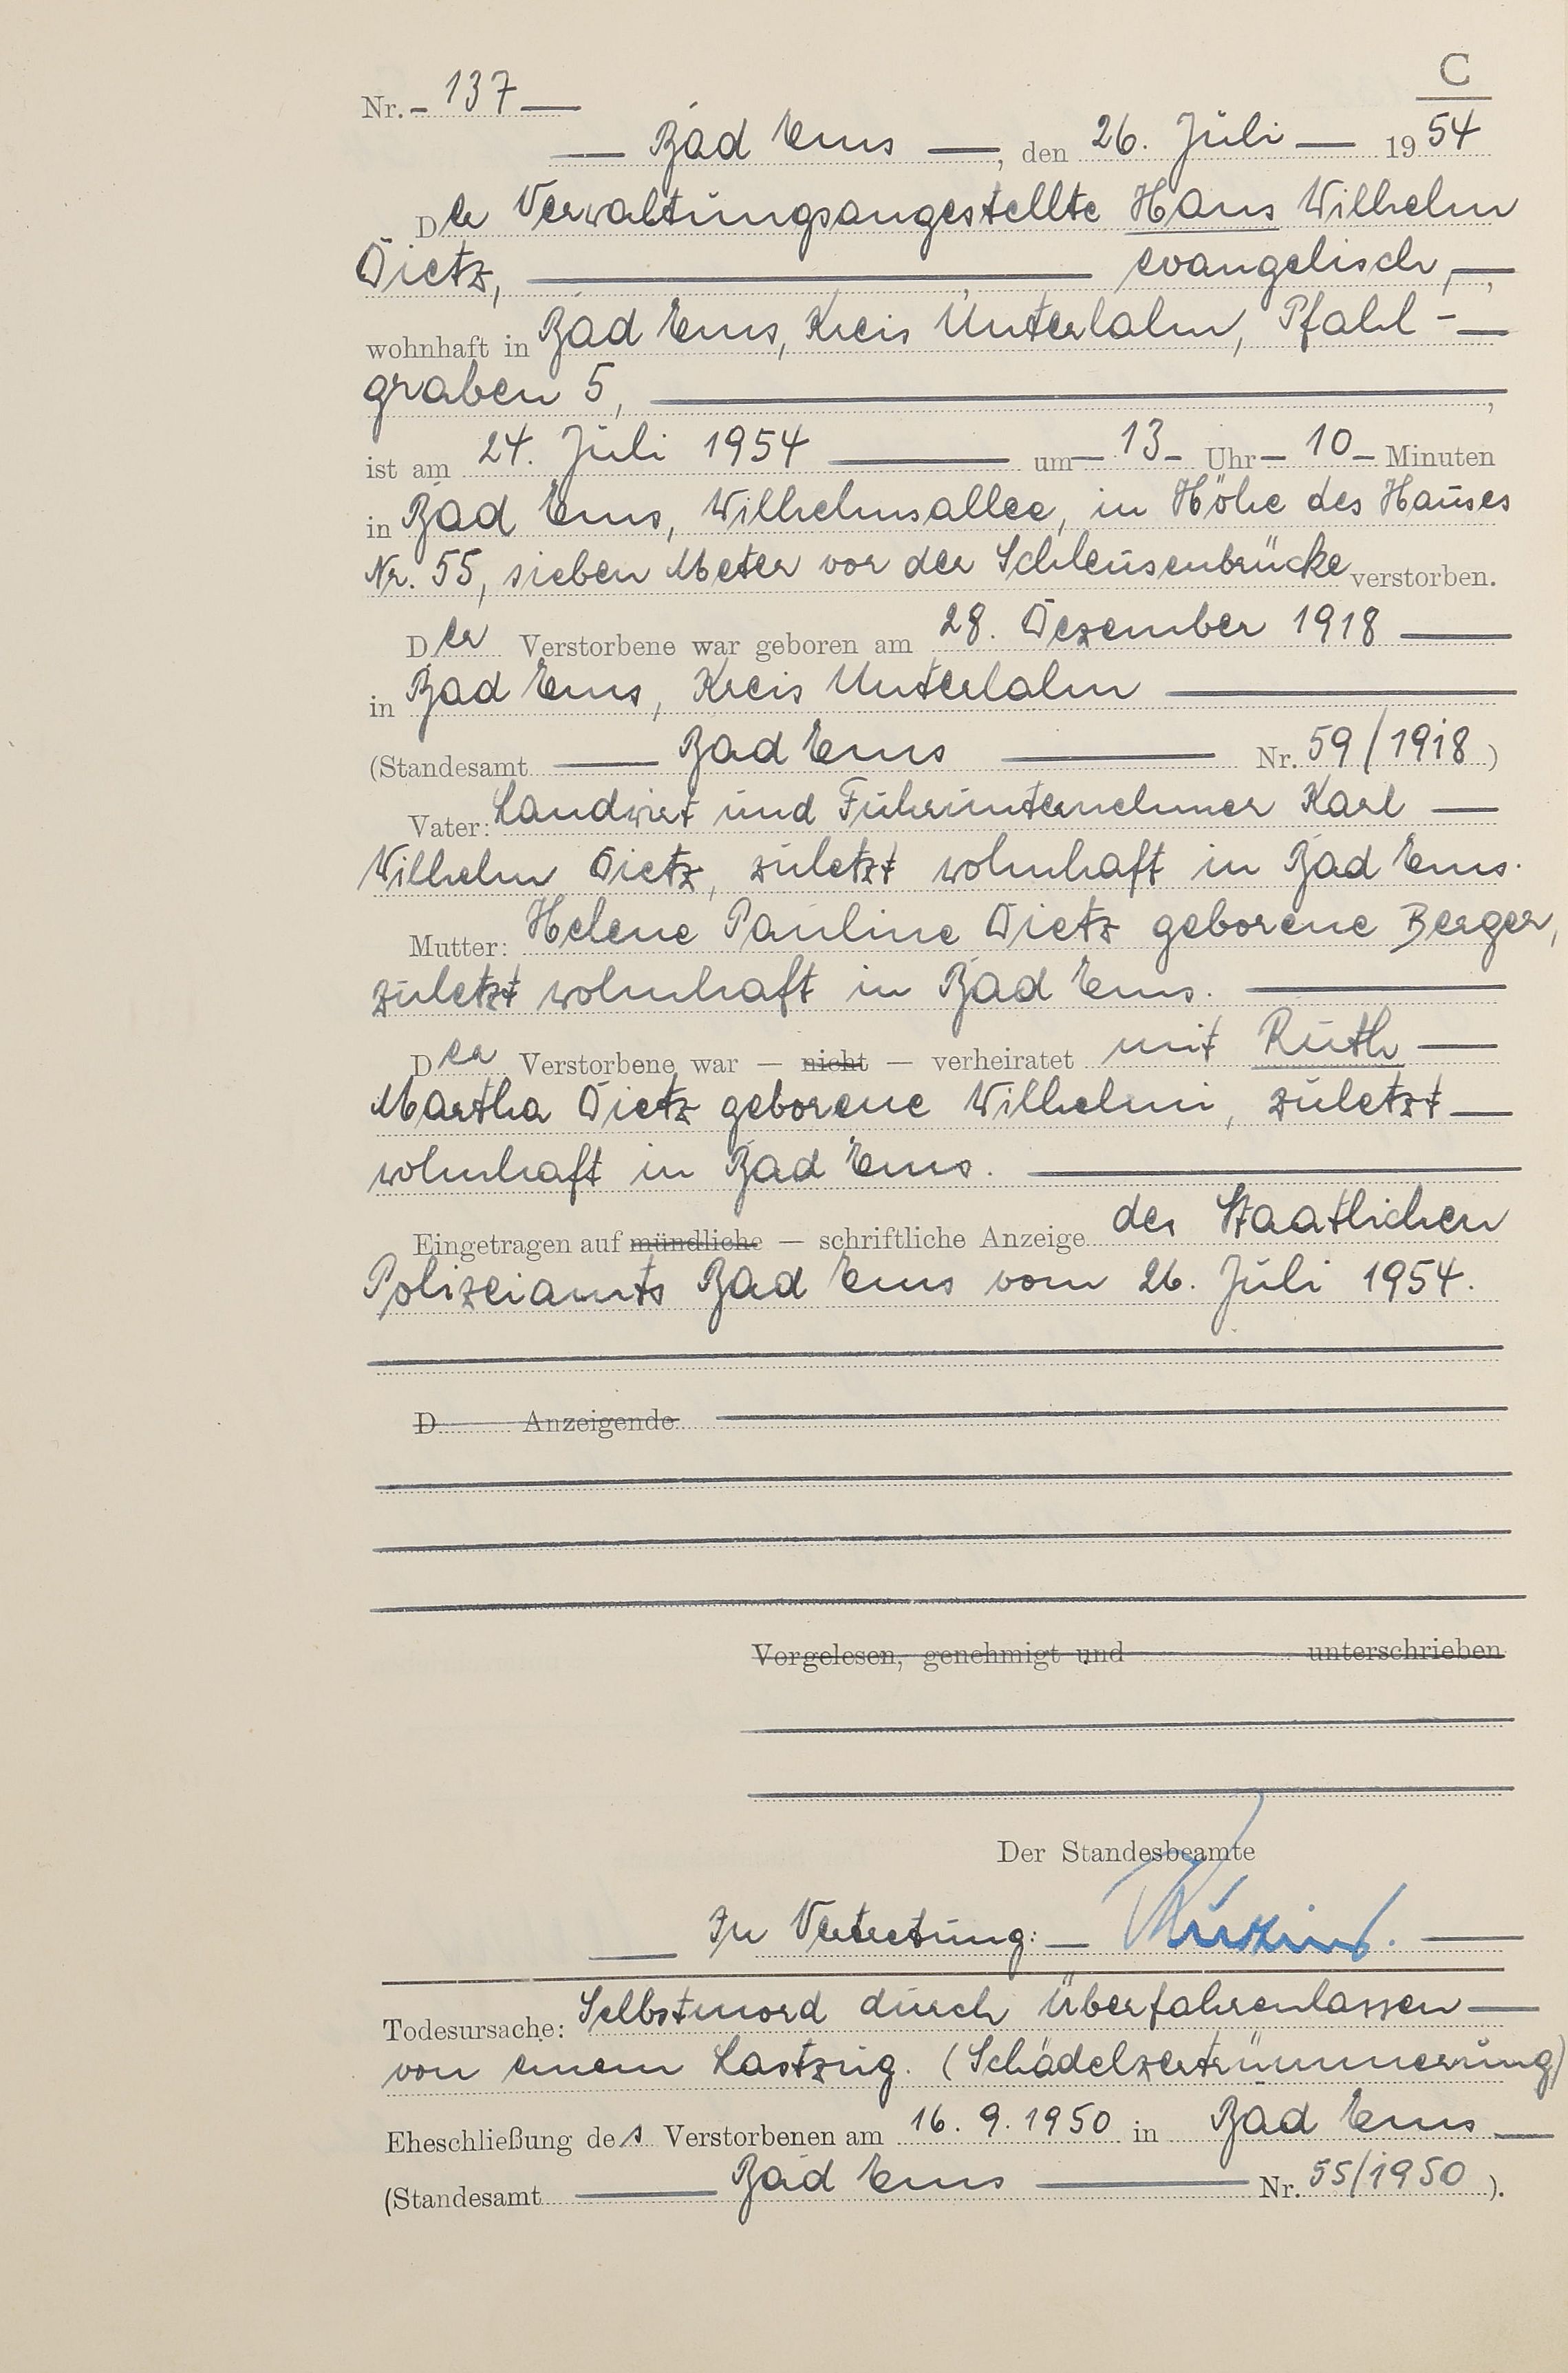 C
Nr. - 137 —
— Bad Ems —, den 26. Juli — 1954
Der Verwaltungsangestellte Hans Wilhelm
Dietz, — evangelisch, —,
wohnhaft in Bad Ems, Kreis Unterlahn, Pfahl- —
graben 5, —,
ist am 24. Juli 1954 — um — 13 - Uhr — 10 — Minuten
in Bad Ems, Wilhelmsallee, in Höhe des Hauses
Nr. 55, sieben Meter vor der Schleusenbrücke verstorben.
Der Verstorbene war geboren am 28. Dezember 1918 —
in Bad Ems, Kreis Unterlahn —
(Standesamt — Bad Ems — Nr. 59/1918)
Vater: Landwirt und Fuhrunternehmer Karl —
Wilhelm Dietz, zuletzt wohnhaft in Bad Ems.
Mutter: Helene Pauline Dietz geborene Berger,
zuletzt wohnhaft in Bad Ems. —
Der Verstorbene war — nicht — verheiratet mit Ruth —
Martha Dietz geborene Wilhelmi, zuletzt —
wohnhaft in Bad Ems. —
Eingetragen auf mündliche — schriftliche Anzeige des Staatlichen
Polizeiamts Bad Ems vom 26. Juli 1954.
D Anzeigende —
Vorgelesen, genehmigt und unterschrieben
Der Standesbeamte
— In Vertretung: —
Todesursache: Selbstmord durch Überfahrenlassen —
von einem Lastzug. (Schädelzertrümmerung)
Eheschließung des Verstorbenen am 16. 9. 1950 in Bad Ems —
(Standesamt — Bad Ems — Nr. 55/1950).